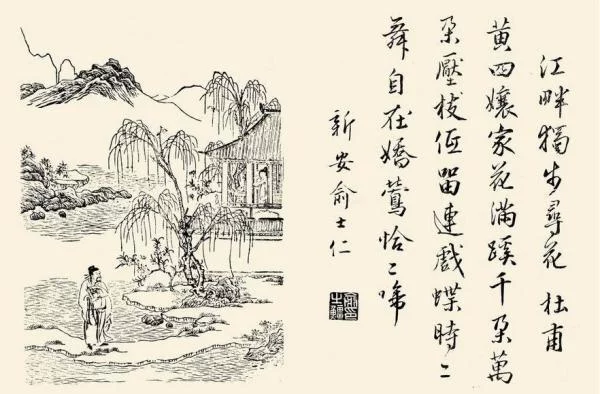 江畔獨步尋花 杜甫
黄四孃家花滿蹊千朵萬
朵壓枝低留連戲蝶時〻
舞自在嬌鶯恰〻啼
新安俞士仁